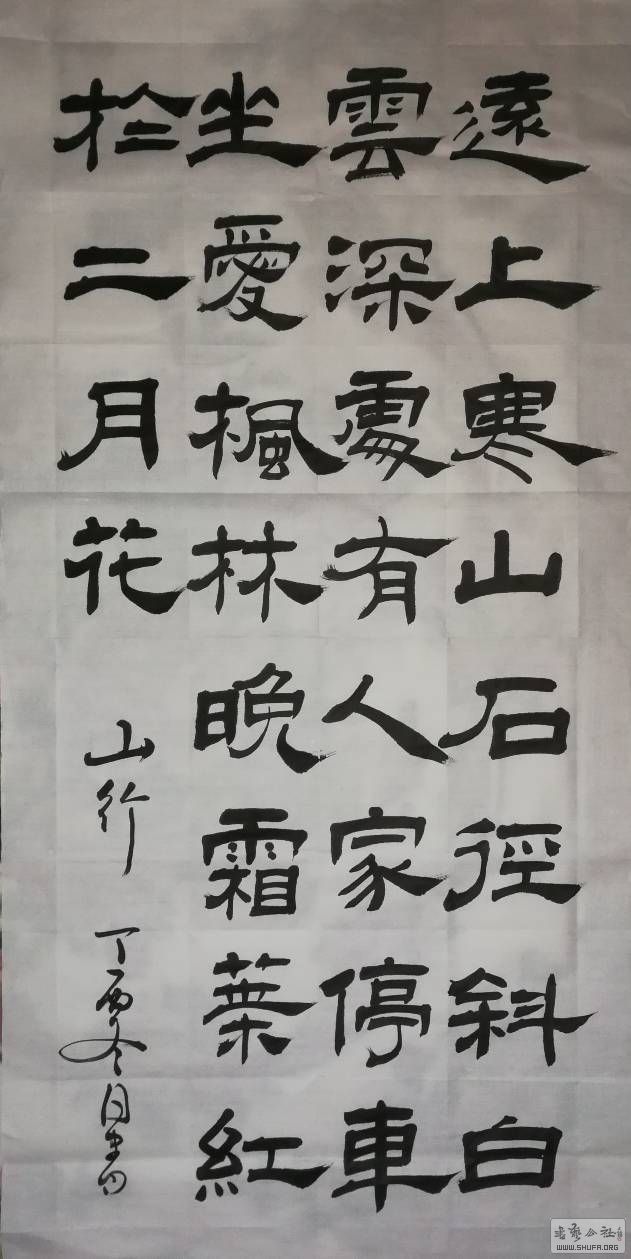 遠上寒山石徑斜白
雲深處有人家停車
坐愛楓林晚霜葉紅
於二月花
山行
丁酉冬月
WWW.SHUFA.ORG